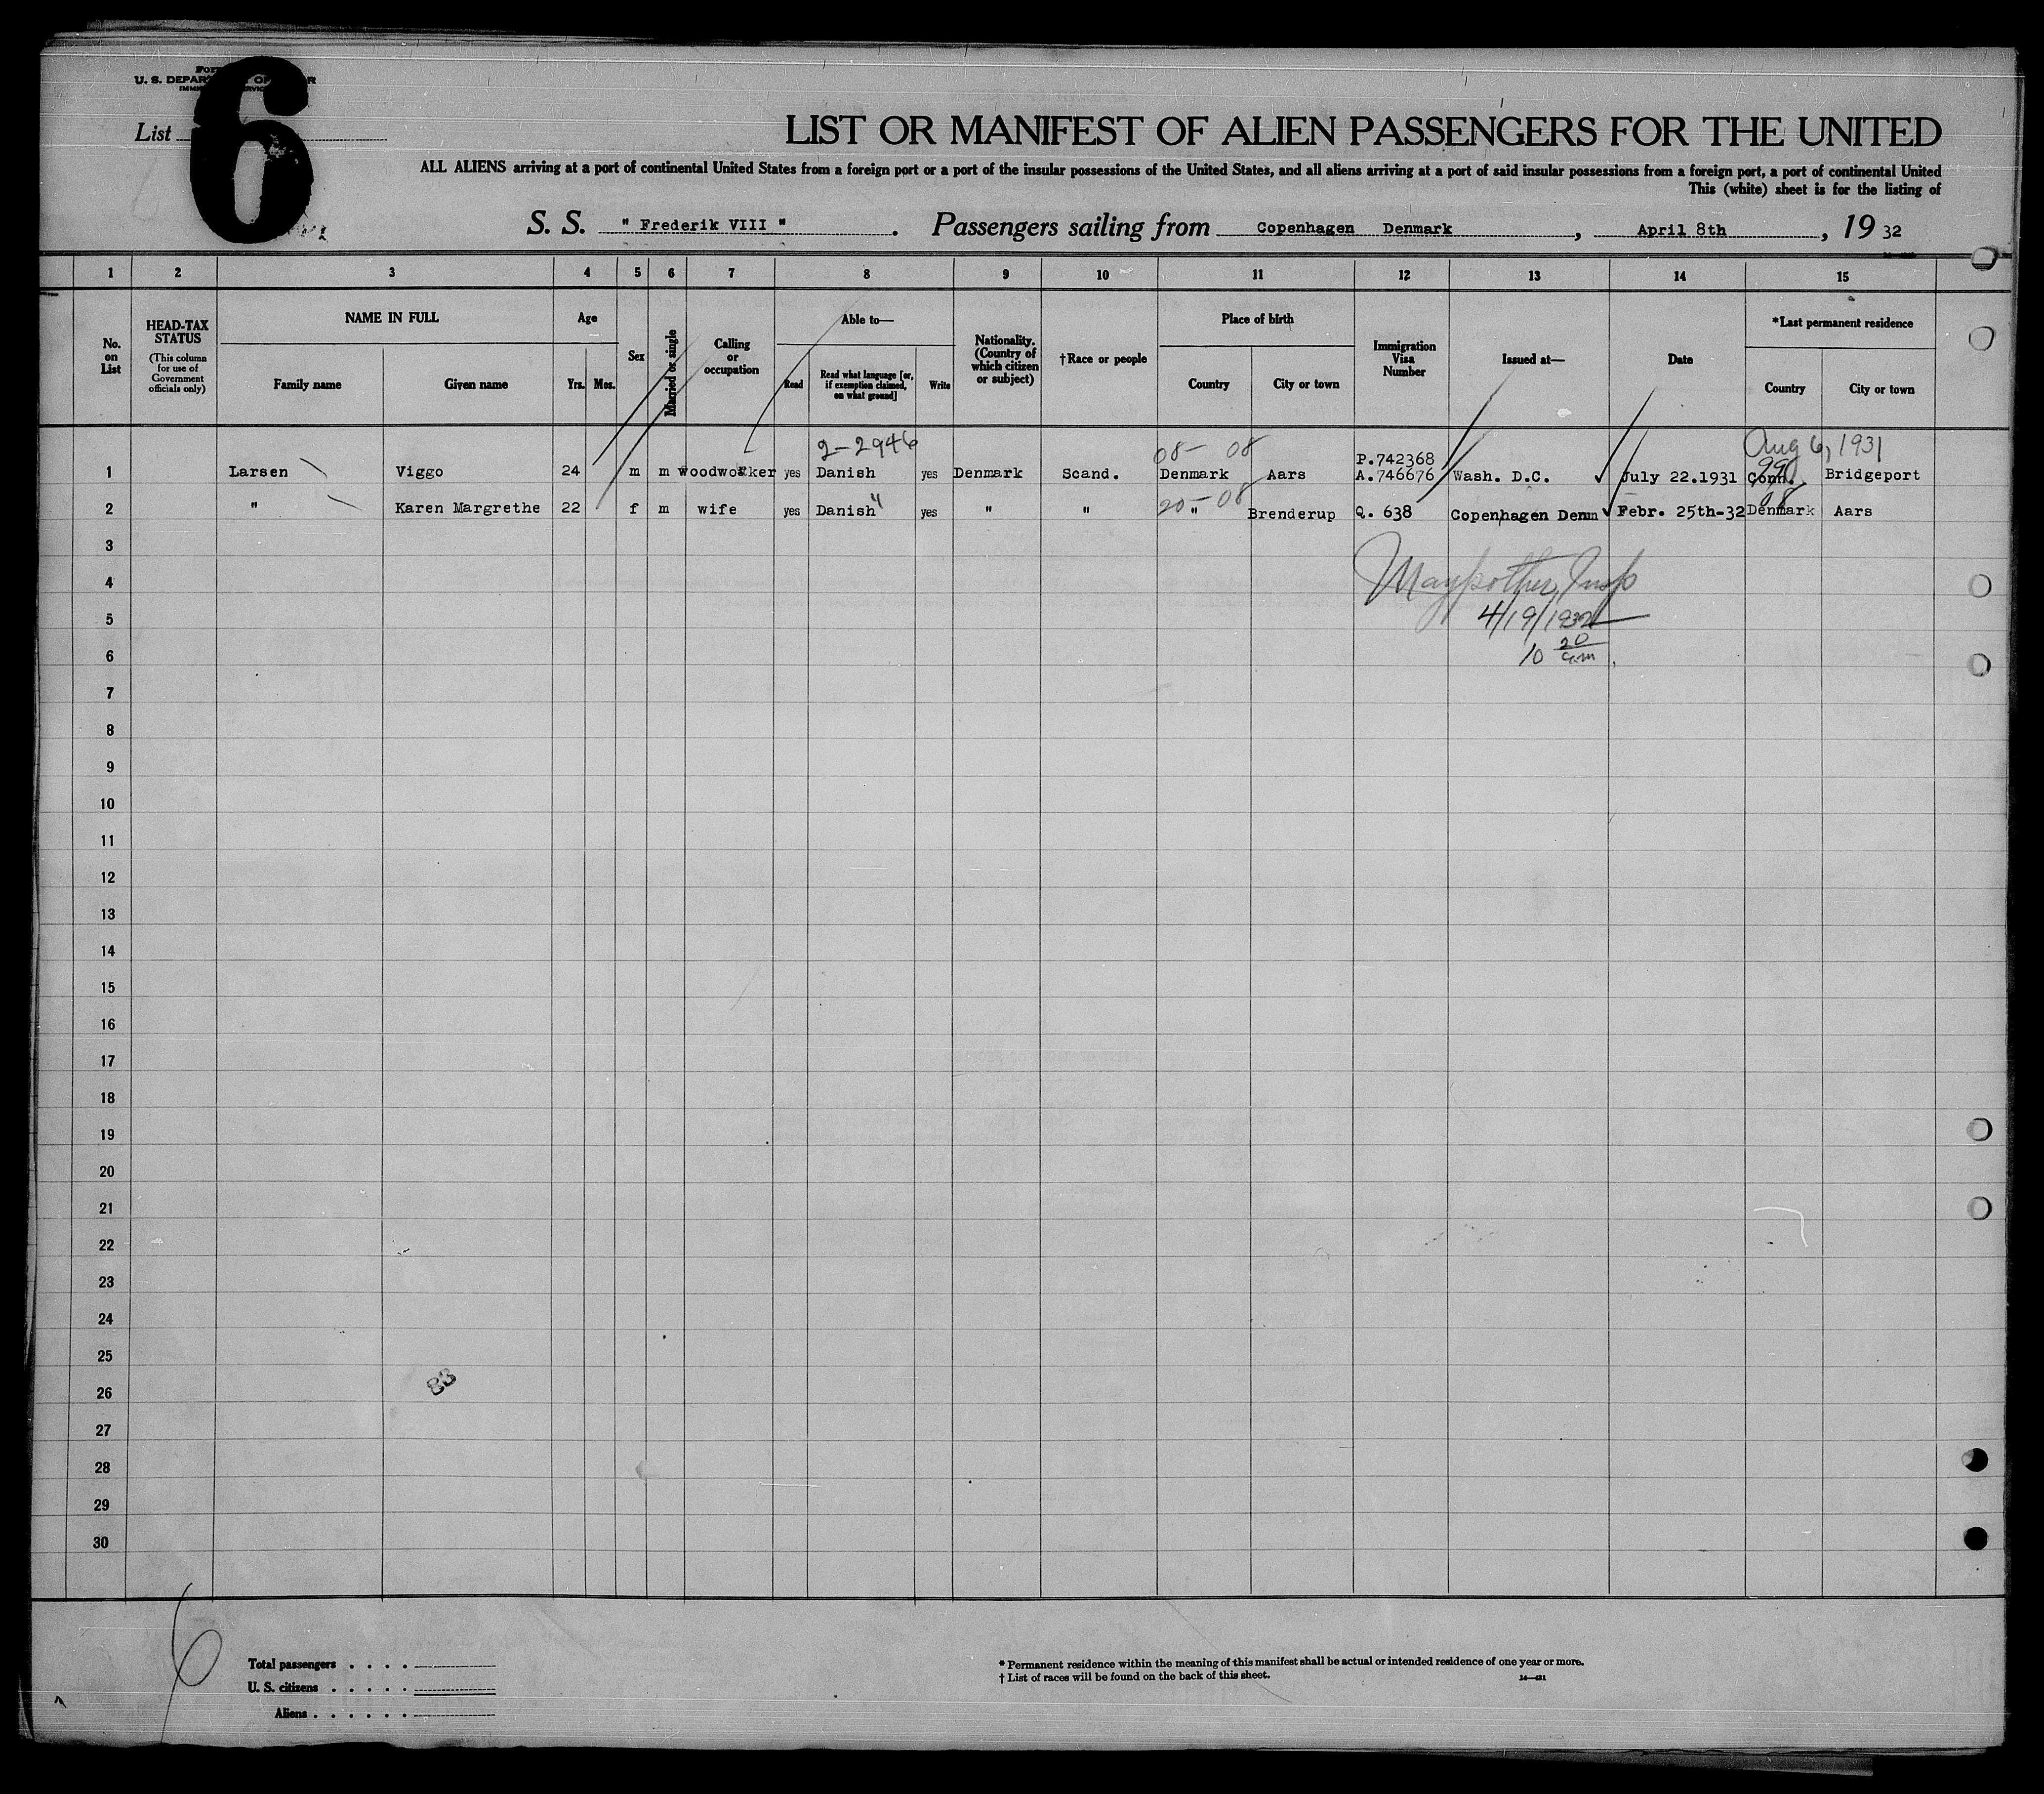 U. S. DEPAR
List
6
LIST OR MANIFEST OF ALIEN PASSENGERS FOR THE UNITED
ALL ALIENS arriving at a port of continental United States from a foreign port or a port of the insular possessions of the United States, and all aliens arriving at a port of said insular possessions from a foreign port, a port of continental United
This (white) sheet is for the listing of
S. S. " Frederik VIII " . Passengers sailing from Copenhagen Denmark , April 8th , 19 32
1 2 3 4 5 6 7 8 9 10 11 12 13 14 15
No. on List
HEAD-TAX STATUS
(This column for use of Government officials only)
NAME IN FULL
Family name
Given name
Age
Yrs.
Mos.
Sex
Married or single
Calling or occupation
Able to—
Read
Read what language [or, if exemption claimed, on what ground]
Write
Nationality. (Country of which citizen or subject)
†Race or people
Place of birth
Country
City or town
Immigration Visa Number
Issued at—
Date
*Last permanent residence
Country
City or town
2-2946 08- 08 Aug 6, 1931
P.742368 99
1 Larsen Viggo 24 m m woodworker yes Danish yes Denmark Scand. Denmark Aars A.746676 Wash. D.C. July 22.1931 Conn. Bridgeport
20-08 08
2 " Karen Margrethe 22 f m wife yes Danish " yes " " " Brenderup Q. 638 Copenhagen Denm Febr. 25th-32 Denmark Aars
3
4
Insp
5
4/19/1932
6
10 20 am
7
8
9
10
11
12
13
14
15
16
17
18
19
20
21
22
23
24
25
26
83
27
28
29
30
6
Total passengers . . . .
U. S. citizens . . . . .
Aliens . . . . . .
* Permanent residence within the meaning of this manifest shall be actual or intended residence of one year or more.
† List of races will be found on the back of this sheet.